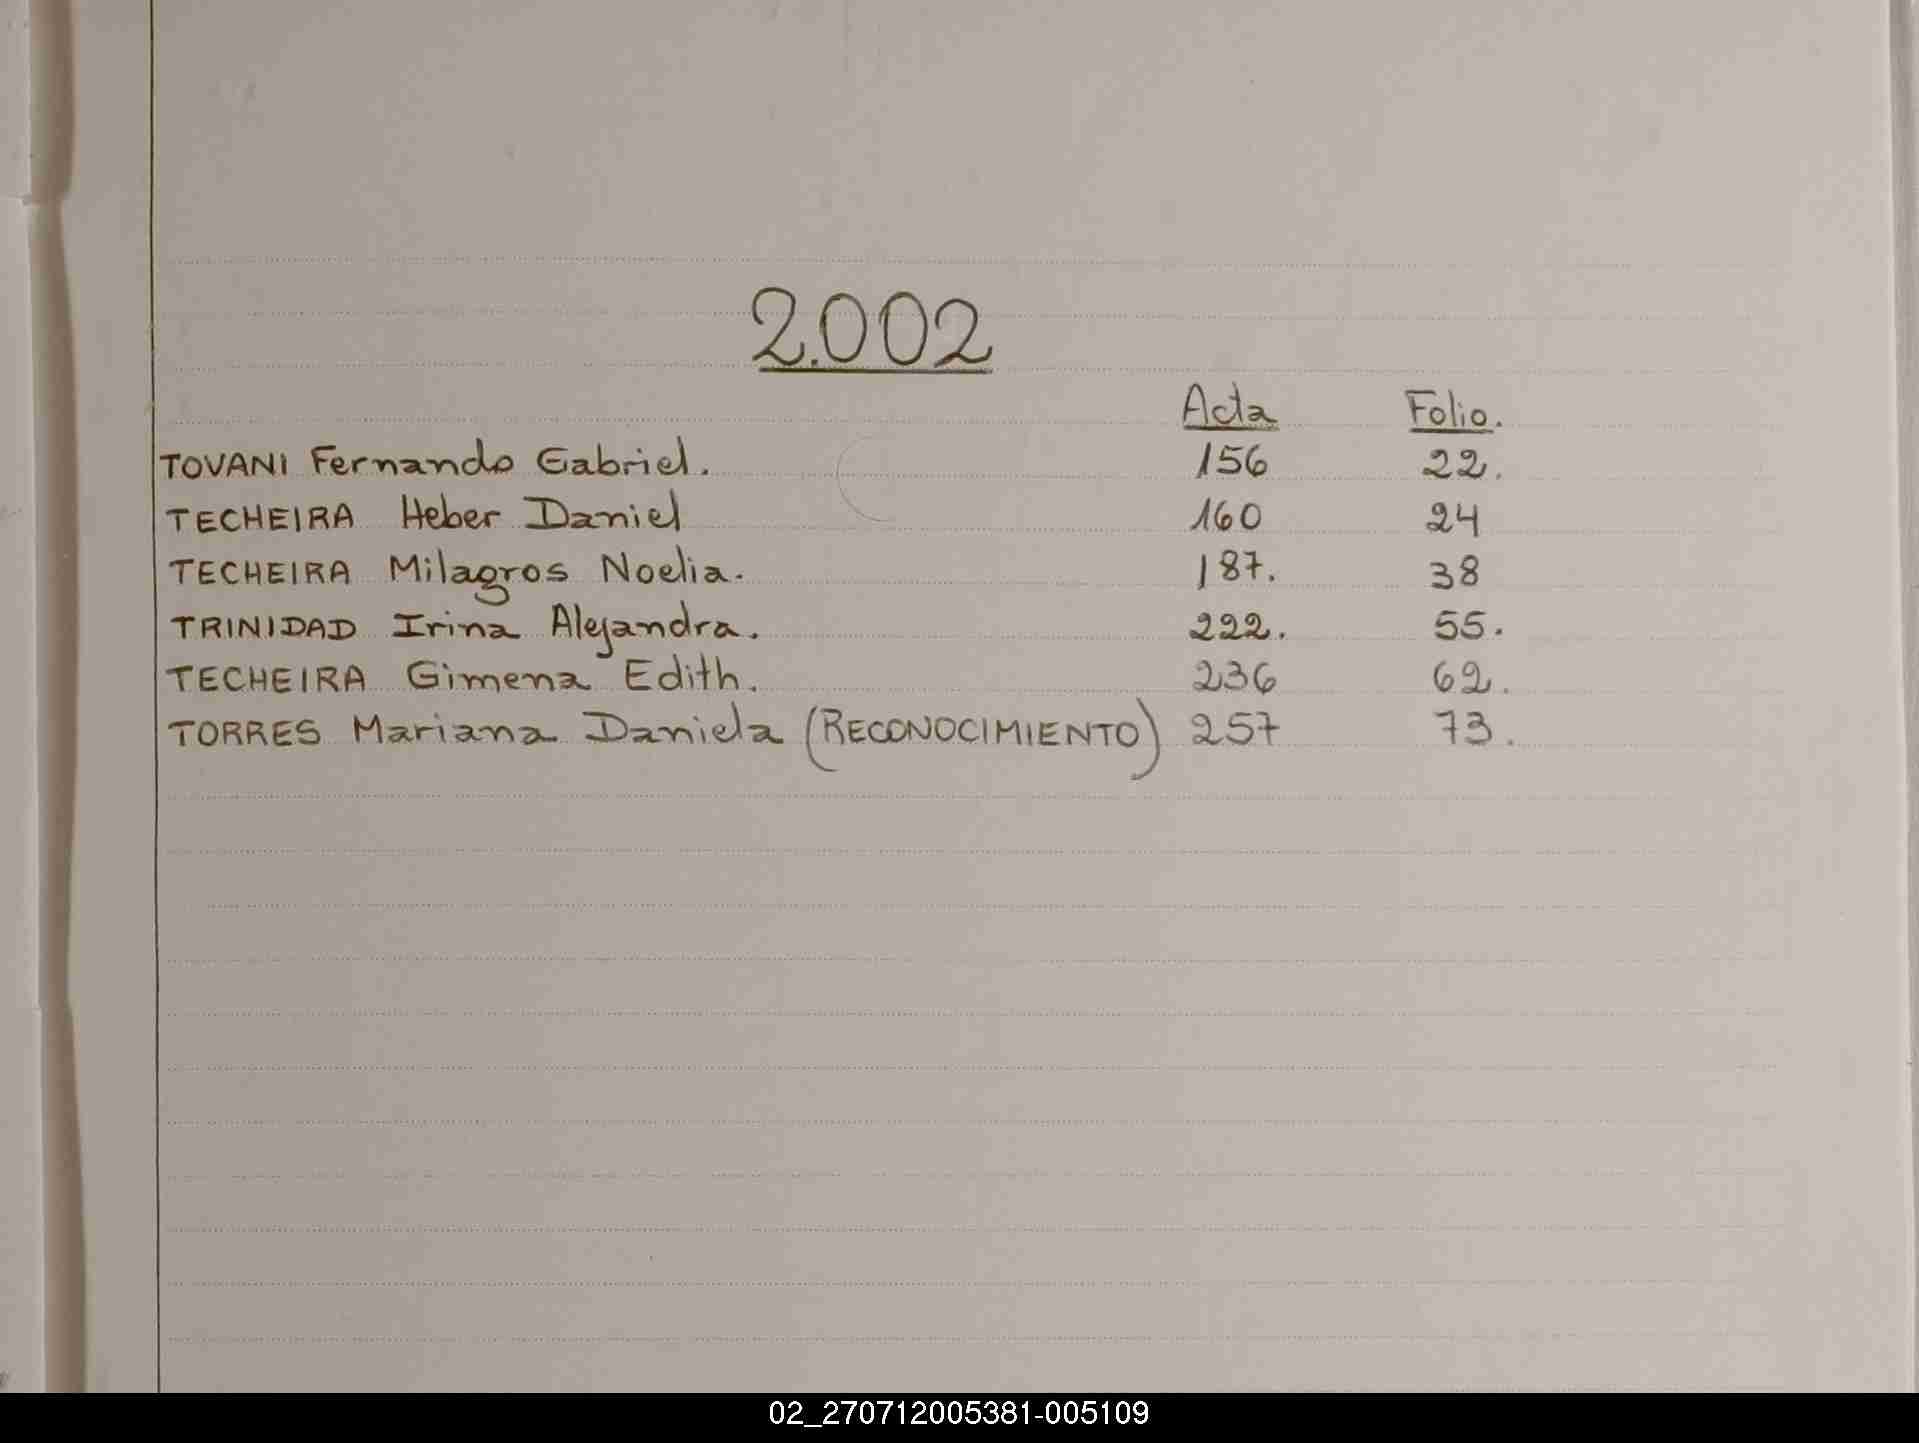 2.002
Acta Folio.
TOVANI Fernando Gabriel. 156 22.
TECHEIRA Heber Daniel 160 24
TECHEIRA Milagros Noelia. 187. 38
TRINIDAD Irina Alejandra. 222. 55.
TECHEIRA Gimena Edith. 236 62.
TORRES Mariana Daniela (RECONOCIMIENTO) 257 73.
02_270712005381-005109